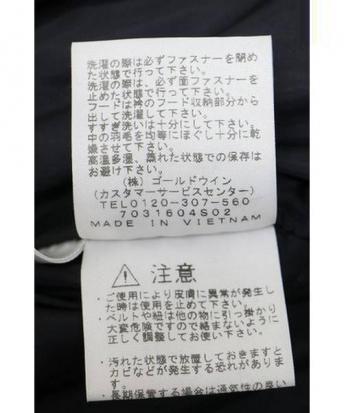 洗濯の際は必ずファスナーを閉め
た状態で行って下さい。
洗濯の際は必ず面ファスナーを
止めた状態で行って下さい。
フードは衿のフード収納部分から
出して洗濯して下さい。
すすぎ洗いは十分にして下さい。
中の羽毛を均等にほぐし十分に乾
燥させて下さい。
高温多湿、蒸れた状態での保存は
お避け下さい。
(株)ゴールドウイン
(カスタマーサービスセンター)
TEL0120-307-560
7031604S02
MADE IN VIETNAM
注意
・ご使用により皮膚に異常が発生し
た時は使用を止めて下さい。
・ベルトや紐は他の物に引っ掛かり
大変危険ですので絡まないように
正しく調整してお使い下さい。
・汚れた状態で放置しておきますと
カビなどが発生する恐れがありま
す。
・長期保管する場合は通気性の良い